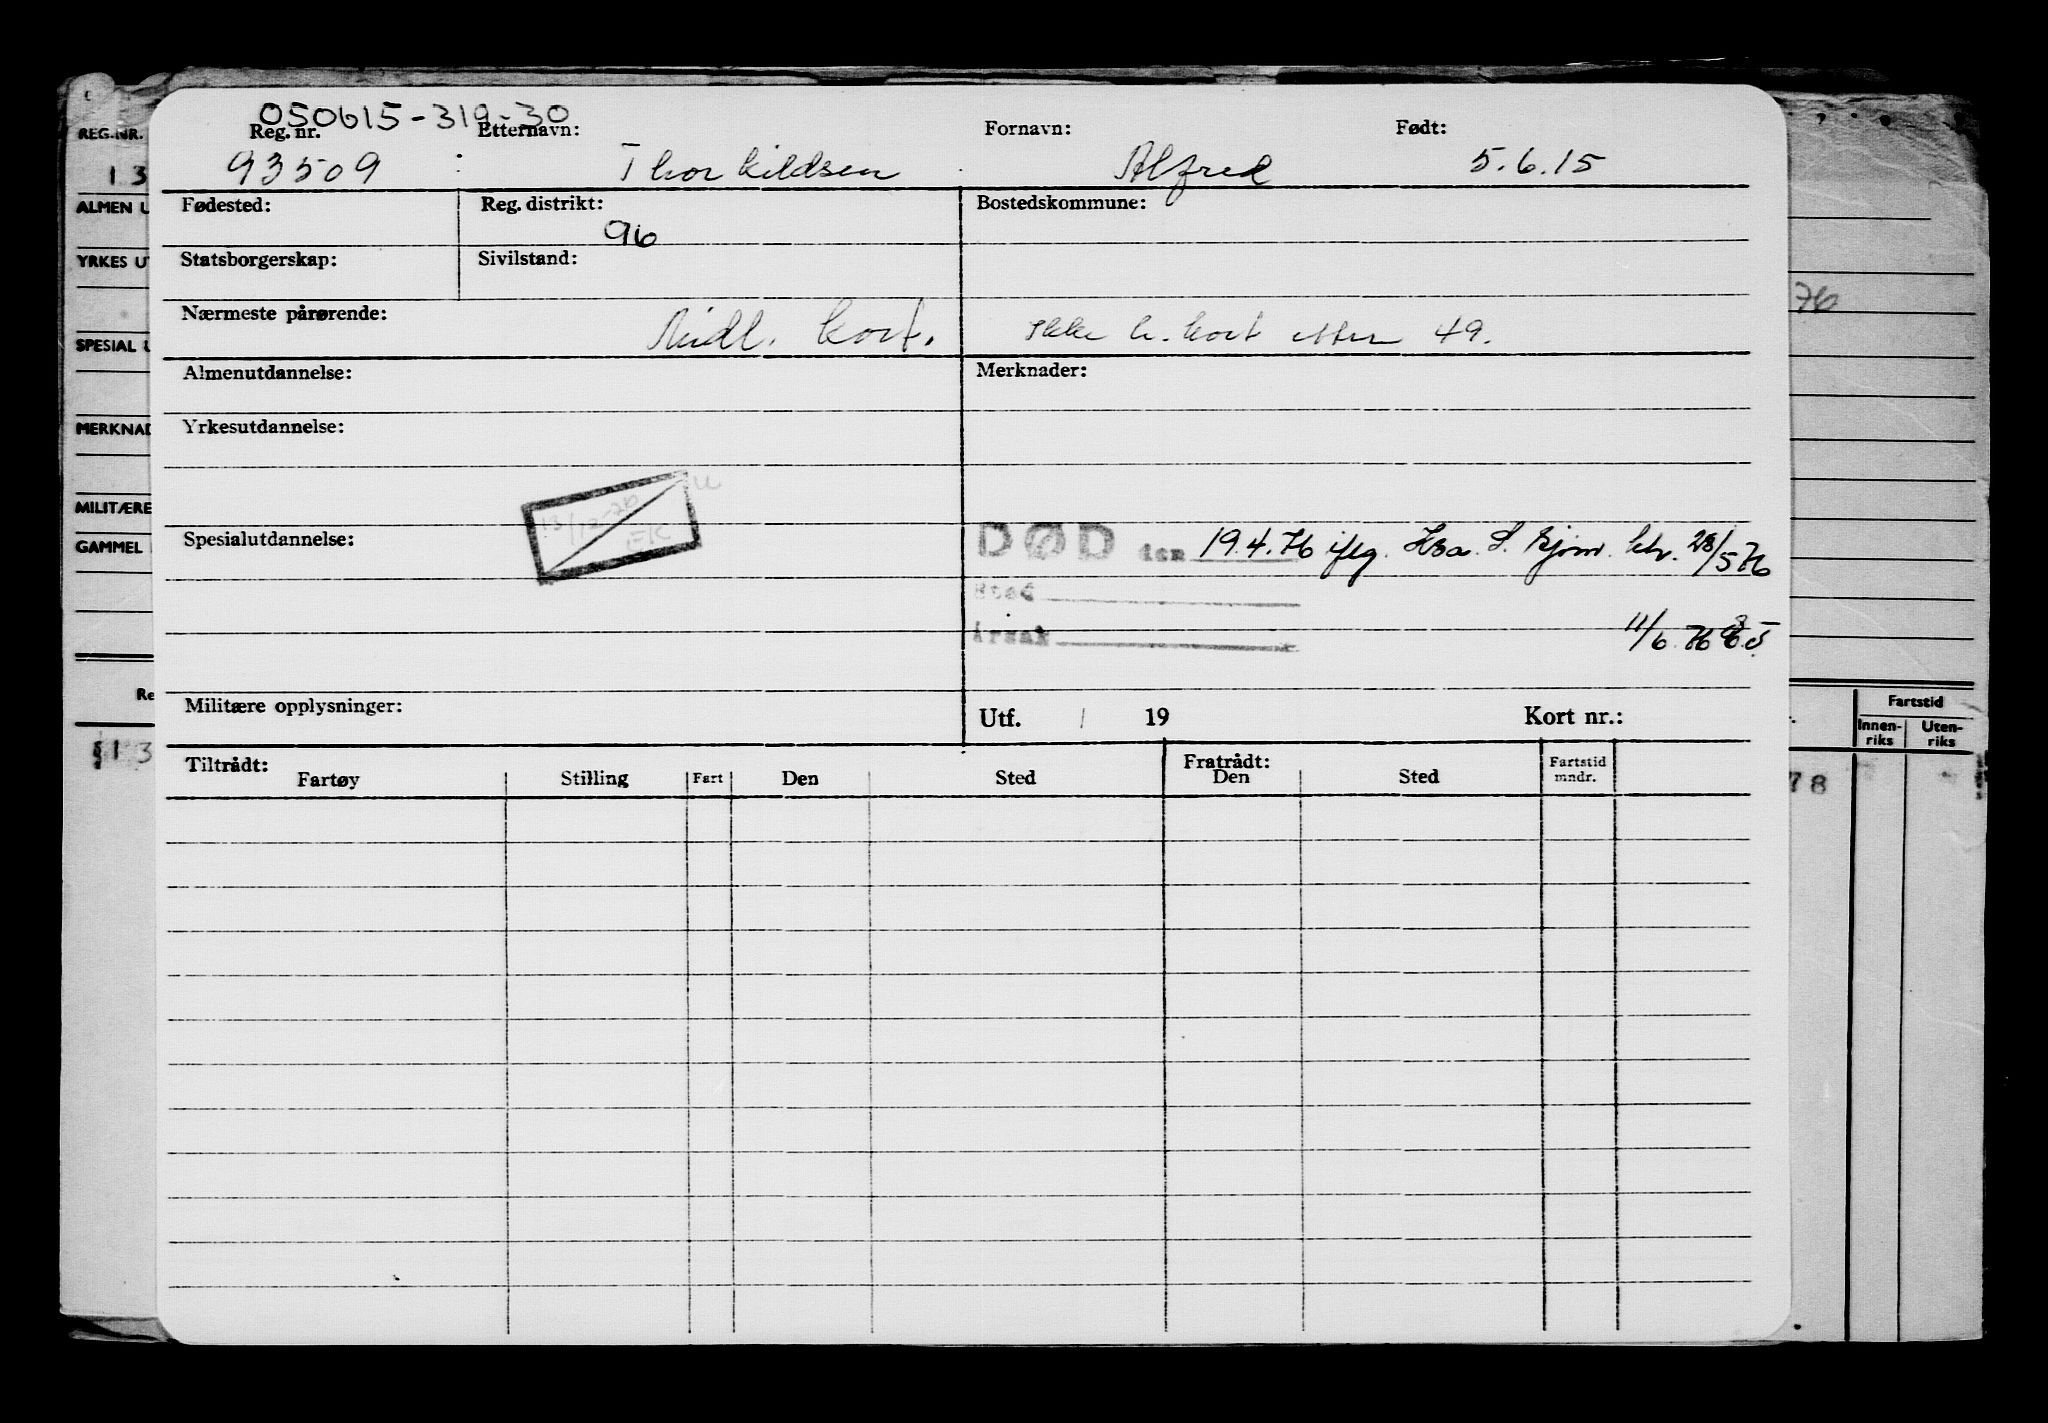 050615-319-30
Reg. nr. Etternavn: Fornavn: Født:
93509 Thorkildsen Alfred 5.6.15
Fødested: Reg. distrikt: Bostedskommune:
96
Statsborgerskap: Sivilstand:
Nærmeste pårørende:
Midl. kort. Ikke h. kort etter 49.
Almenutdannelse: Merknader:
Yrkesutdannelse:
Spesialutdannelse:
DØD den 19.4.76 iflg. S. Bjørn. 28/5 76
Sted
Årsak
11/6.76
Militære opplysninger: Utf. / 19 Kort nr.:
Tiltrådt: Fratrådt:
Fartøy Stilling Fart Den Sted Den Sted Fartstid mndr.
REG.NR.
13
ALMEN U
YRKES UT
SPESIAL U
MERKNAD
MILITÆRE
GAMMEL
Re
§ 1 3
76
Fartstid
Innen-
riks
Uten-
riks
78